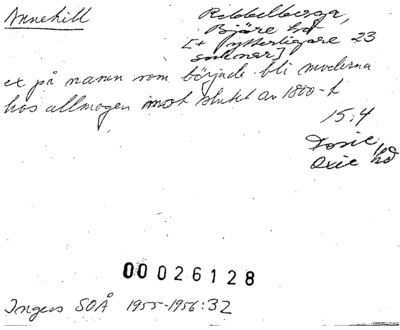 Annehill
Rebbelberga,
Bjäre hd
[+ ytterligare 23
socknar]
ex på namn som började bli moderna
hos allmogen mot slutet av 1800-t
15:4
Oxie hd
00026128
Ingers SOÅ 1955-1956:32